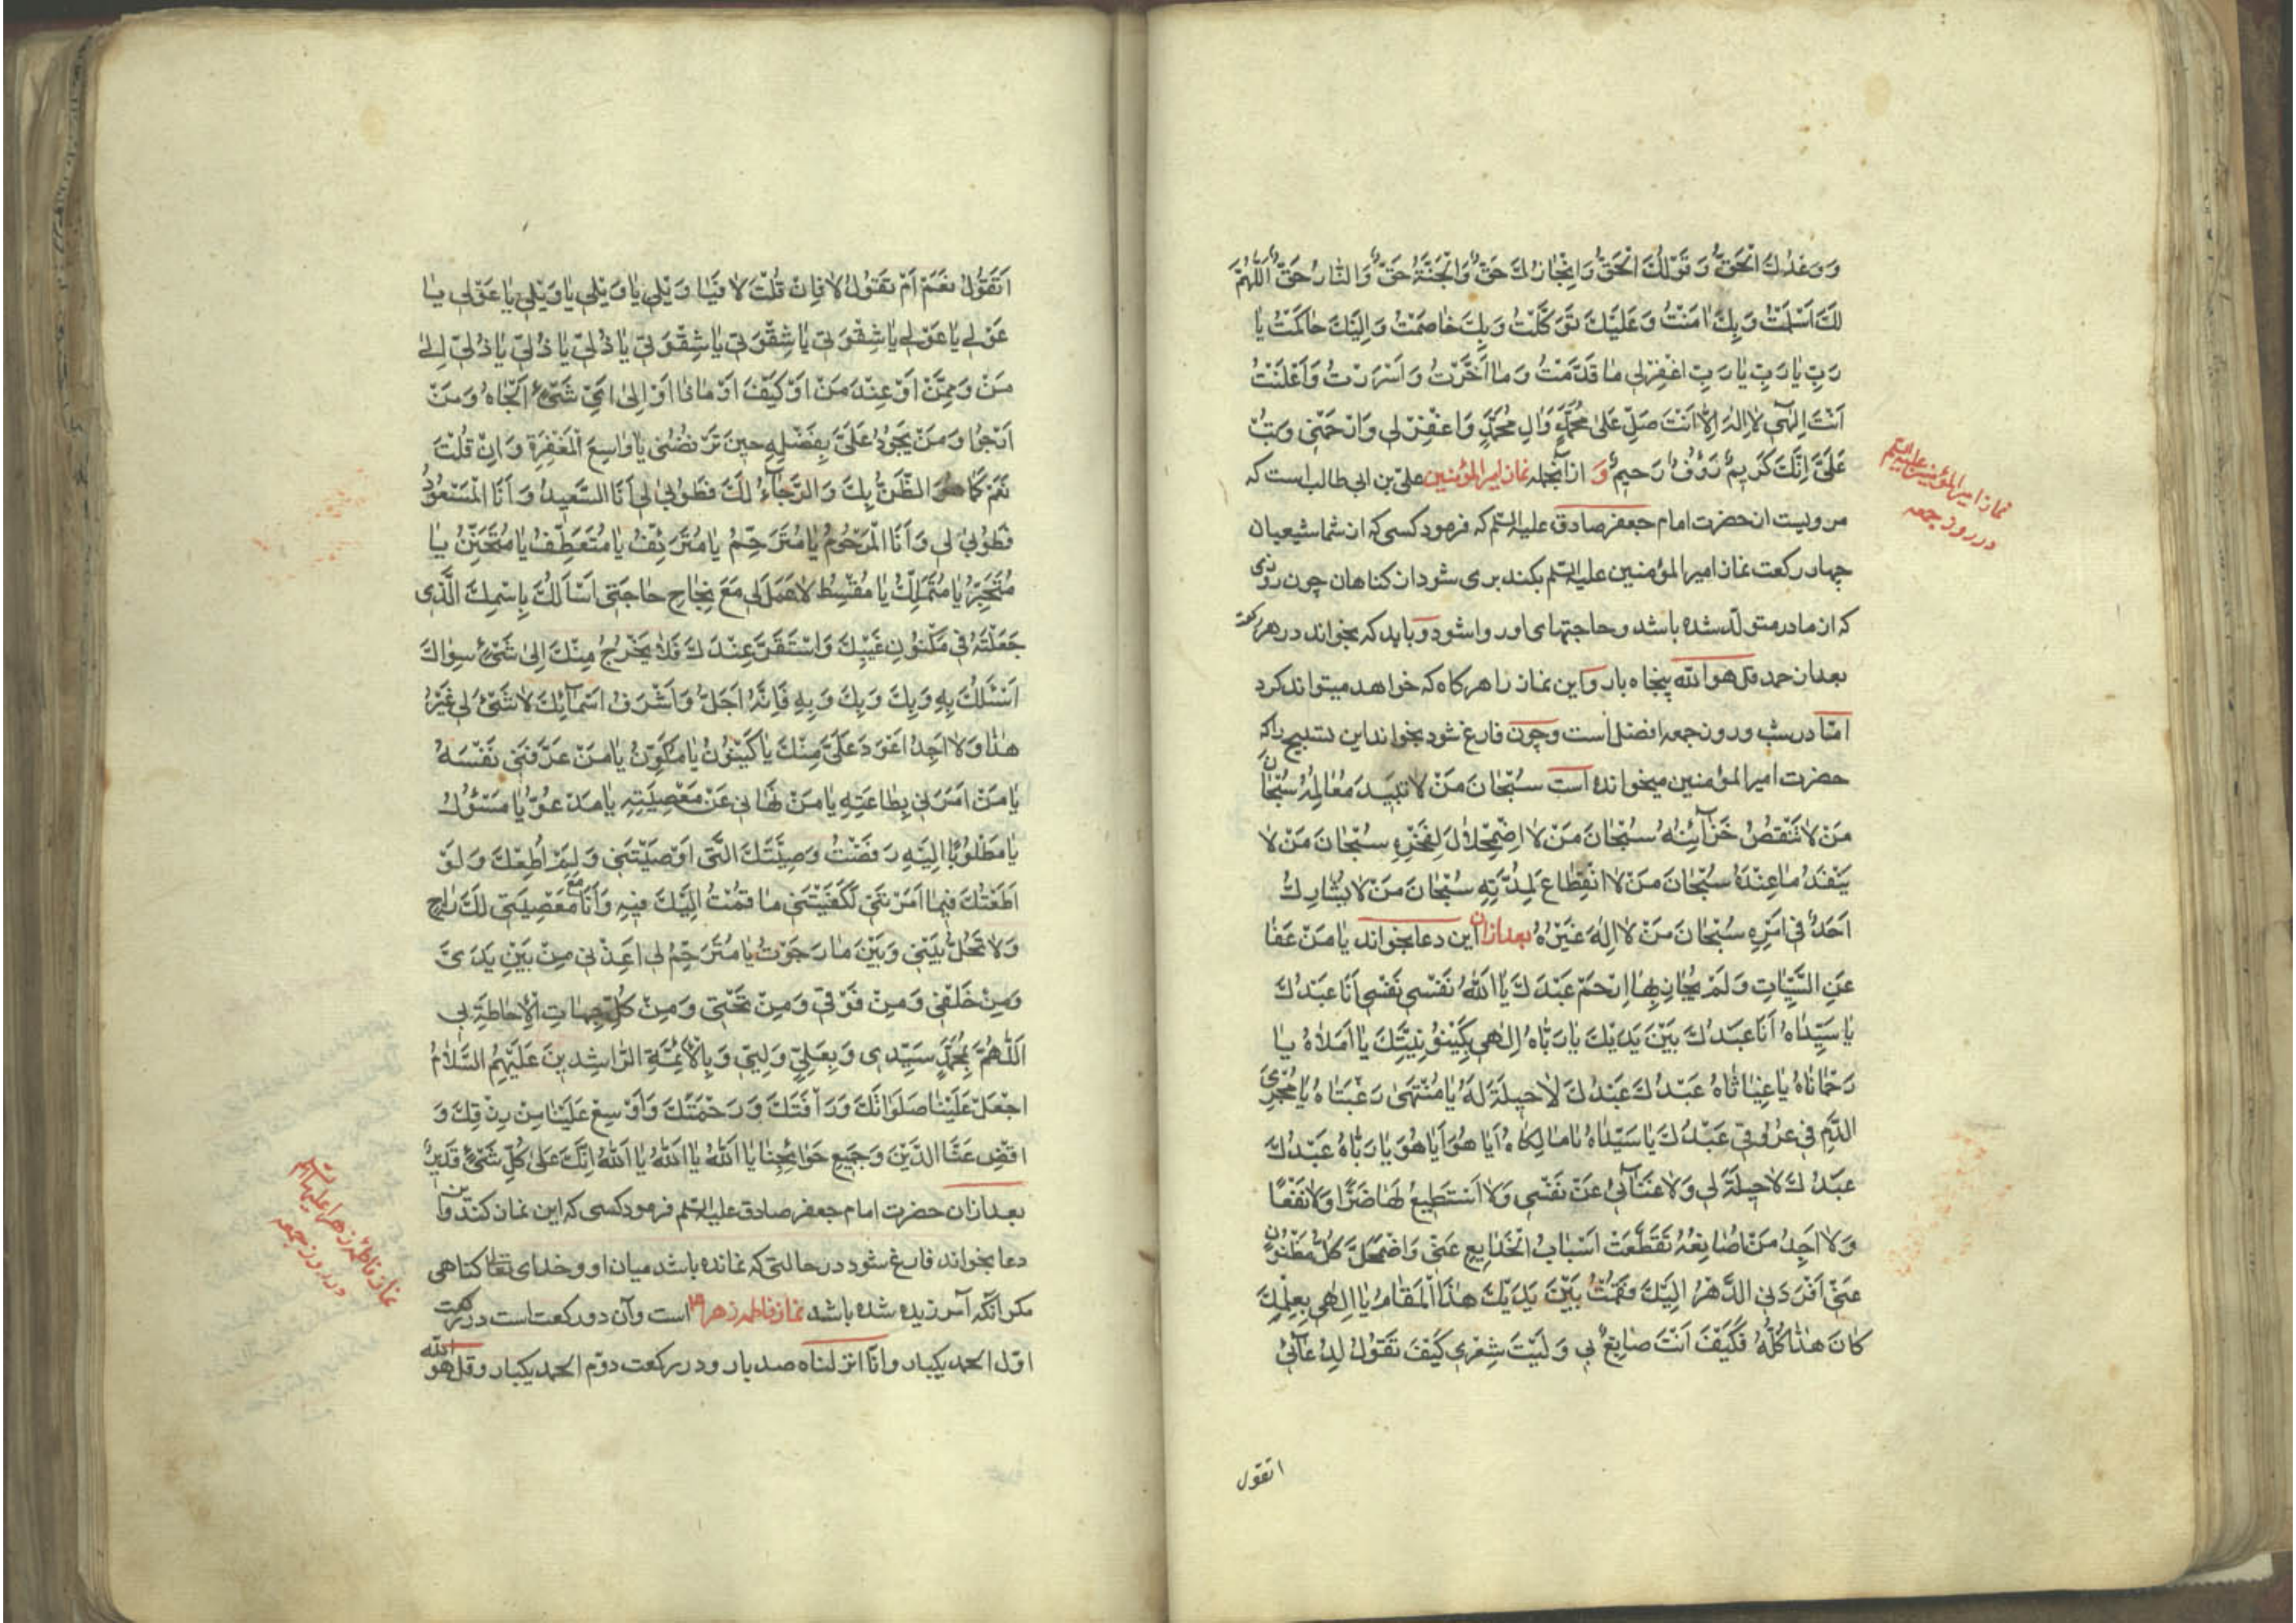 وَوَعْدُكَ الْحَقُّ وَقَوْلُكَ الْحَقُّ وَاِنْجٰازُكَ حَقٌّ وَالْجَنَّةُ حَقٌّ وَالنّٰارُ حَقٌّ اَللّٰهُمَّ
لَكَ اَسْلَمْتُ وَبِكَ اٰمَنْتُ وَعَلَيْكَ تَوَكَّلْتُ وَبِكَ خٰاصَمْتُ وَاِلَيْكَ حٰاكَمْتُ يٰا
رَبِّ يٰا رَبِّ يٰا رَبِّ اغْفِرْ لِي مٰا قَدَّمْتُ وَمٰا اَخَّرْتُ وَاَسْرَرْتُ وَاَعْلَنْتُ
اَنْتَ اِلٰهِي لٰا اِلٰهَ اِلّٰا اَنْتَ صَلِّ عَلىٰ مُحَمَّدٍ وَاٰلِ مُحَمَّدٍ وَاغْفِرْ لِي وَارْحَمْنِي وَتُبْ
عَلَيَّ اِنَّكَ كَرِيمٌ رَؤُفٌ رَحِيمٌ وَ ازآنجمله نماز امير المؤمنين علىّ بن ابى طالب است كه
نماز امير المؤمنين عليه السلم
در روز جمعه
مرويست از حضرت امام جعفر صادق عليه السلم كه فرمود كسى كه از شما شيعيان
چهار ركعت نماز امير المؤمنين عليه السلم بكند برى شود از كناهان چون روزى
كه از مادر متولد شده باشد و حاجتهاى او روا شود و بايد كه بخواند در هر ركعت
بعد از حمد قل هو الله پنجاه بار و اين نماز را هركاه كه خواهد ميتواند كرد
امّا در شب و روز جمعه افضل است و چون فارغ شود بخواند اين تسبيح را كه
حضرت امير المؤمنين ميخوانده است سُبْحٰانَ مَنْ لٰا تَبِيدُ مَعٰالِمُهُ سُبْحٰانَ
مَنْ لٰا تَنْقُصُ خَزٰآئِنُهُ سُبْحٰانَ مَنْ لٰا اضْمِحْلٰالَ لِفَخْرِهِ سُبْحٰانَ مَنْ لٰا
يَنْفَدُ مٰا عِنْدَهُ سُبْحٰانَ مَنْ لٰا انْقِطٰاعَ لِمُدَّتِهِ سُبْحٰانَ مَنْ لٰا يُشٰارِكُ
اَحَدًا فِي اَمْرِهِ سُبْحٰانَ مَنْ لٰا اِلٰهَ غَيْرُهُ بعد از آن اين دعا بخواند يٰا مَنْ عَفٰا
عَنِ السَّيِّئٰاتِ وَلَمْ يُجٰازِ بِهٰا اِرْحَمْ عَبْدَكَ يٰا اَللّٰهُ نَفْسِي نَفْسِي اَنَا عَبْدُكَ
يٰا سَيِّدٰاهُ اَنَا عَبْدُكَ بَيْنَ يَدَيْكَ يٰا رَبّٰاهُ اِلٰهِي بِكَيْنُونِيَّتِكَ يٰا اَمَلٰاهُ يٰا
رَحْمٰانٰاهُ يٰا غِيٰاثٰاهُ عَبْدُكَ عَبْدُكَ لٰا حِيلَةَ لَهُ يٰا مُنْتَهىٰ رَغْبَتٰاهُ يٰا مُجْرِيَ
الدَّمِ فِي عُرُوقِي عَبْدُكَ يٰا سَيِّدٰاهُ يٰا مٰالِكٰاهُ اَيٰا هُوَ اَيٰا هُوَ يٰا رَبّٰاهُ عَبْدُكَ
عَبْدُكَ لٰا حِيلَةَ لِي وَلٰا غِنٰى بِي عَنْ نَفْسِي وَلٰا اَسْتَطِيعُ لَهٰا ضَرًّا وَلٰا نَفْعًا
وَلٰا اَجِدُ مَنْ اُصٰانِعُهُ تَقَطَّعَتْ اَسْبٰابُ الْخَدٰايِعِ عَنِّي وَاضْمَحَلَّ كُلُّ مَظْنُونٍ
عَنِّي اَفْرَدَنِي الدَّهْرُ اِلَيْكَ فَقُمْتُ بَيْنَ يَدَيْكَ هٰذَا الْمَقٰامَ يٰا اِلٰهِي بِعِلْمِكَ
كٰانَ هٰذٰا كُلُّهُ فَكَيْفَ اَنْتَ صٰانِعٌ بِي وَلَيْتَ شِعْرِي كَيْفَ تَقُولُ لِدُعٰآئِي
اتقول
اَتَقُولُ نَعَمْ اَمْ تَقُولُ لٰا فَاِنْ قُلْتَ لٰا فَيٰا وَيْلِي يٰا وَيْلِي يٰا وَيْلِي يٰا عَوْلِي يٰا
عَوْلِي يٰا عَوْلِي يٰا شِقْوَتِي يٰا شِقْوَتِي يٰا شِقْوَتِي يٰا ذُلِّي يٰا ذُلِّي يٰا ذُلِّي اِلىٰ
مَنْ وَمِمَّنْ اَوْ عِنْدَ مَنْ اَوْ كَيْفَ اَوْ مٰاذٰا اَوْ اِلىٰ اَيِّ شَيْءٍ اَلْجَاهُ وَمَنْ
اَرْجُوا وَمَنْ يَجُودُ عَلَيَّ بِفَضْلِهِ حِينَ تَرْفُضُنِي يٰا وٰاسِعَ الْمَغْفِرَةِ وَاِنْ قُلْتَ
نَعَمْ كَمٰا هُوَ الظَّنُّ بِكَ وَالرَّجٰآءُ لَكَ فَطُوبىٰ لِي اَنَا السَّعِيدُ وَاَنَا الْمَسْعُودُ
فَطُوبىٰ لِي وَاَنَا الْمَرْحُومُ يٰا مُتَرَحِّمُ يٰا مُتَرَئِّفُ يٰا مُتَعَطِّفُ يٰا مُتَحَنِّنُ يٰا
مُتَجَبِّرُ يٰا مُتَمَلِّكُ يٰا مُقْسِطُ لٰا عَمَلَ لِي مَعَ نَجٰاحِ حٰاجَتِي اَسْاَلُكَ بِاسْمِكَ الَّذِي
جَعَلْتَهُ فِي مَكْنُونِ غَيْبِكَ وَاسْتَقَرَّ عِنْدَكَ فَلٰا يَخْرُجُ مِنْكَ اِلىٰ شَيْءٍ سِوٰاكَ
اَسْئَلُكَ بِهِ وَبِكَ وَبِكَ وَبِهِ فَاِنَّهُ اَجَلُّ وَاَشْرَفُ اَسْمٰآئِكَ لٰا شَيْءَ لِي غَيْرُ
هٰذٰا وَلٰا اَجِدُ اَعْوَدَ عَلَيَّ مِنْكَ يٰا كَيْنُونُ يٰا مُكَوِّنُ يٰا مَنْ عَرَّفَنِي نَفْسَهُ
يٰا مَنْ اَمَرَنِي بِطٰاعَتِهِ يٰا مَنْ نَهٰانِي عَنْ مَعْصِيَتِهِ يٰا مَدْعُوُّ يٰا مَسْؤُلُ
يٰا مَطْلُوبًا اِلَيْهِ رَفَضْتُ وَصِيَّتَكَ الَّتِي اَوْصَيْتَنِي وَلَمْ اُطِعْكَ وَلَوْ
اَطَعْتُكَ فِيمٰا اَمَرْتَنِي لَكَفَيْتَنِي مٰا قُمْتُ اِلَيْكَ فِيهِ وَاَنَا مَعَ مَعْصِيَتِي لَكَ رٰاجٍ
وَلٰا تَحُلْ بَيْنِي وَبَيْنَ مٰا رَجَوْتُ يٰا مُتَرَحِّمُ لِي اَعِذْنِي مِنْ بَيْنِ يَدَيَّ
وَمِنْ خَلْفِي وَمِنْ فَوْقِي وَمِنْ تَحْتِي وَمِنْ كُلِّ جِهٰاتِ الْاِحٰاطَةِ بِي
اَللّٰهُمَّ بِمُحَمَّدٍ سَيِّدِي وَبِعَلِيٍّ وَلِيِّي وَبِالْاَئِمَّةِ الرّٰاشِدِينَ عَلَيْهِمُ السَّلٰامُ
اجْعَلْ عَلَيْنٰا صَلَوٰاتِكَ وَرَأْفَتَكَ وَرَحْمَتَكَ وَاَوْسِعْ عَلَيْنٰا مِنْ رِزْقِكَ وَ
اقْضِ عَنَّا الدَّيْنَ وَجَمِيعَ حَوٰائِجِنٰا يٰا اَللّٰهُ يٰا اَللّٰهُ يٰا اَللّٰهُ اِنَّكَ عَلىٰ كُلِّ شَيْءٍ قَدِيرٌ
بعد از آن حضرت امام جعفر صادق عليه السلم فرمود كسى كه اين نماز كند و اين
دعا بخواند فارغ شود در حالتى كه نمانده باشد ميان او و خداى تعالى كناهى
مكر آنكه آمرزيده شده باشد نماز فاطمه زهرا است و آن دو ركعت است در ركعت
اوّل الحمد يكبار و انّا انزلناه صد بار و در ركعت دوّم الحمد يكبار و قل هو الله
نماز فاطمه زهرا عليها السلم
در روز جمعه